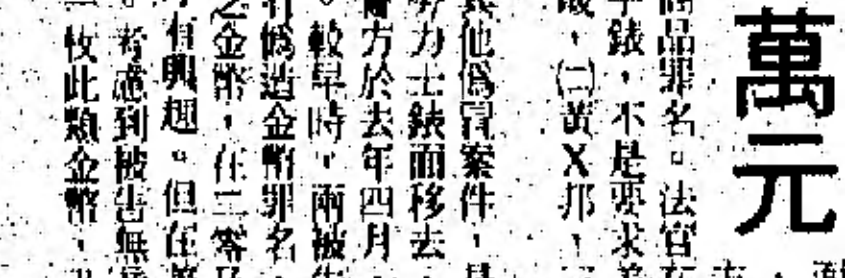 萬元
商品罪名。法官
錶，不是要求
，㈡黃X邦，
其他偽冒案件，
勞力士錶而移去
方於去年四月，
較早時，兩被
偽造金幣罪名，
之金幣，在二零
有興趣。但在
考慮到被告無
枚此類金幣，